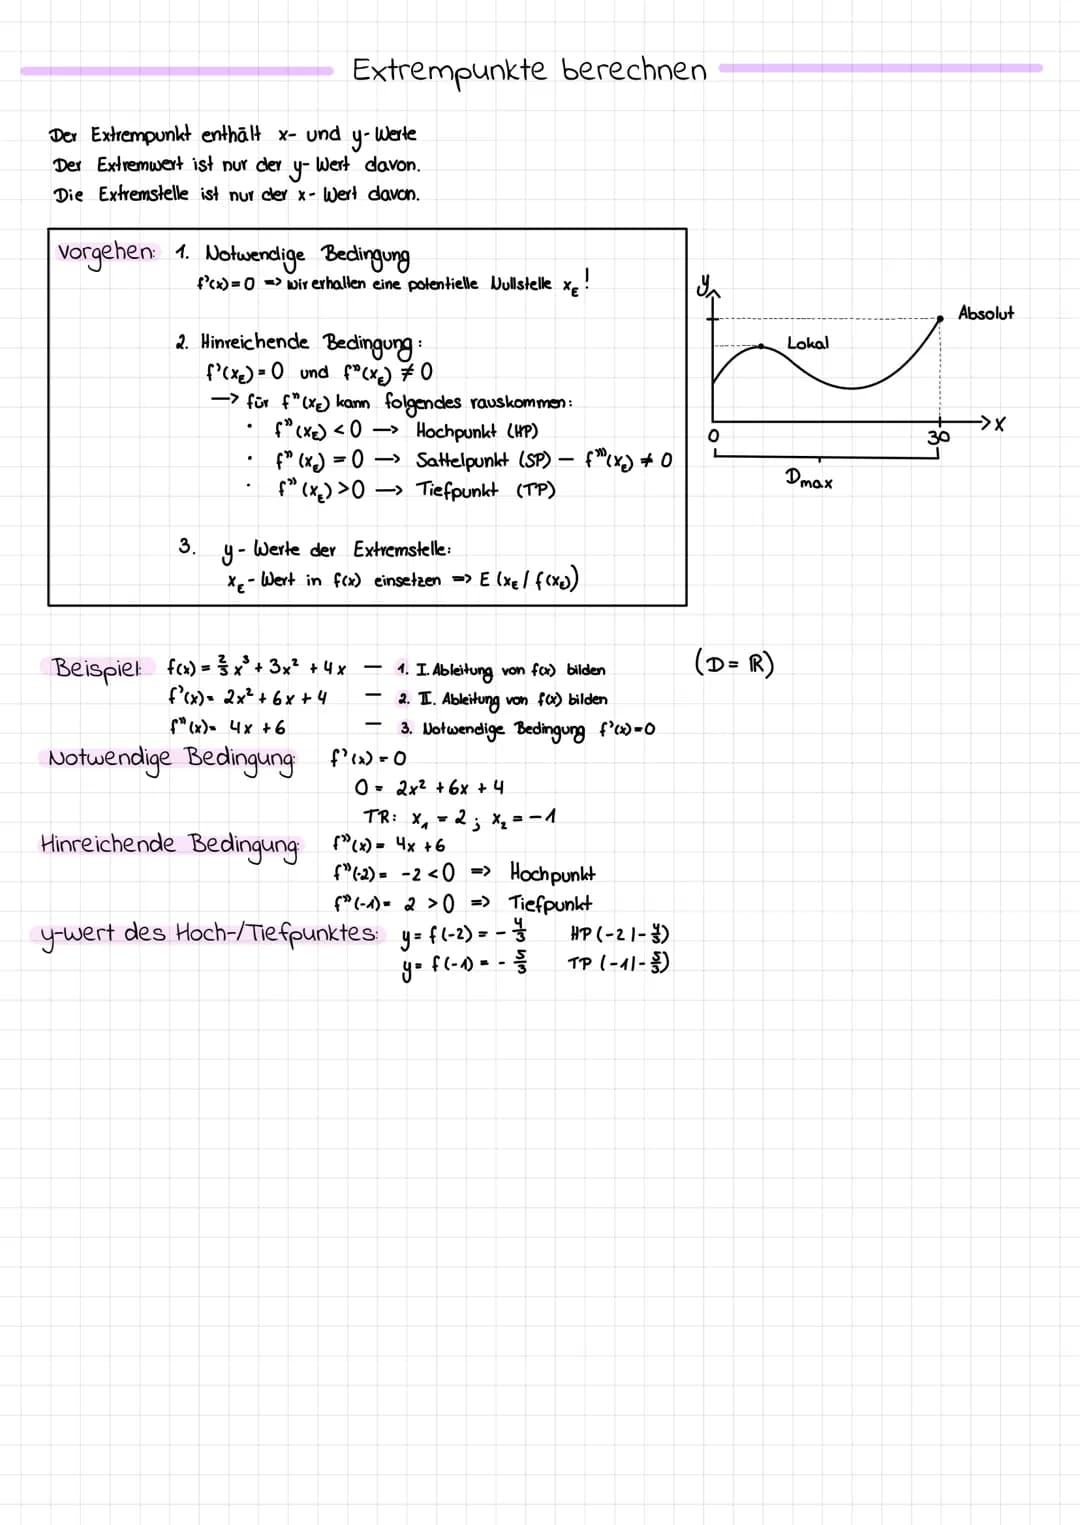 Extrempunkte berechnen
Der Extrempunkt enthält x- und y-Werte
Der Extremwert ist nur der y-Wert davon.
Die Extremstelle ist nur der x-Wert davon.
Vorgehen: 1. Notwendige Bedingung
f'(x)=0 => wir erhalten eine potentielle Nullstelle x_E!
2. Hinreichende Bedingung:
f'(x_E)=0 und f"(x_E) ≠ 0
-> für f"(x_E) kann folgendes rauskommen:
· f"(x_E) < 0 -> Hochpunkt (HP)
· f"(x_E) = 0 -> Sattelpunkt (SP) – f'''(x_E) ≠ 0
· f"(x_E) > 0 -> Tiefpunkt (TP)
3. y-Werte der Extremstelle:
x_E-Wert in f(x) einsetzen => E (x_E / f(x_E))
y
Absolut
Lokal
x
0 30
Dmax
Beispiel: f(x) = 2/3 x³ + 3x² + 4x – 1. I. Ableitung von f(x) bilden (D = ℝ)
f'(x) = 2x² + 6x + 4 – 2. II. Ableitung von f(x) bilden
f"(x) = 4x + 6 – 3. Notwendige Bedingung f'(x)=0
Notwendige Bedingung: f'(x) = 0
0 = 2x² + 6x + 4
TR: x₁ = 2 ; x₂ = -1
Hinreichende Bedingung: f"(x) = 4x + 6
f"(-2) = -2 < 0 => Hochpunkt
f"(-1) = 2 > 0 => Tiefpunkt
y-wert des Hoch-/Tiefpunktes: y = f(-2) = - 4/3 HP (-2 | - 4/3)
y = f(-1) = - 5/3 TP (-1 | - 5/3)